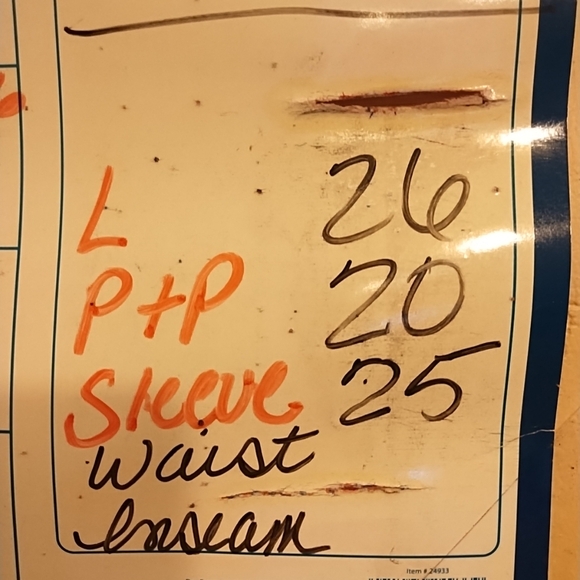 L 26
P+P 20
Sleeve 25
Waist
Enseam
Item # 24933